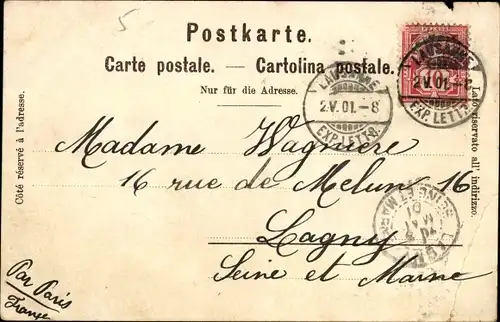 5
Postkarte.
Carte postale. — Cartolina postale.
Nur für die Adresse.
Côté réservé à l'adresse.
Lato riservato all' indirizzo.
LAUSANNE
2.V.01.–8
EXP. LETTR.
LAUSANNE
2.V.01.
EXP. LETTR.
10
Madame Wagnière
16 rue de Melun 16
Lagny
Seine et Marne
Par Paris
France
LAGNY
MAI
01
SEINE ET MARNE